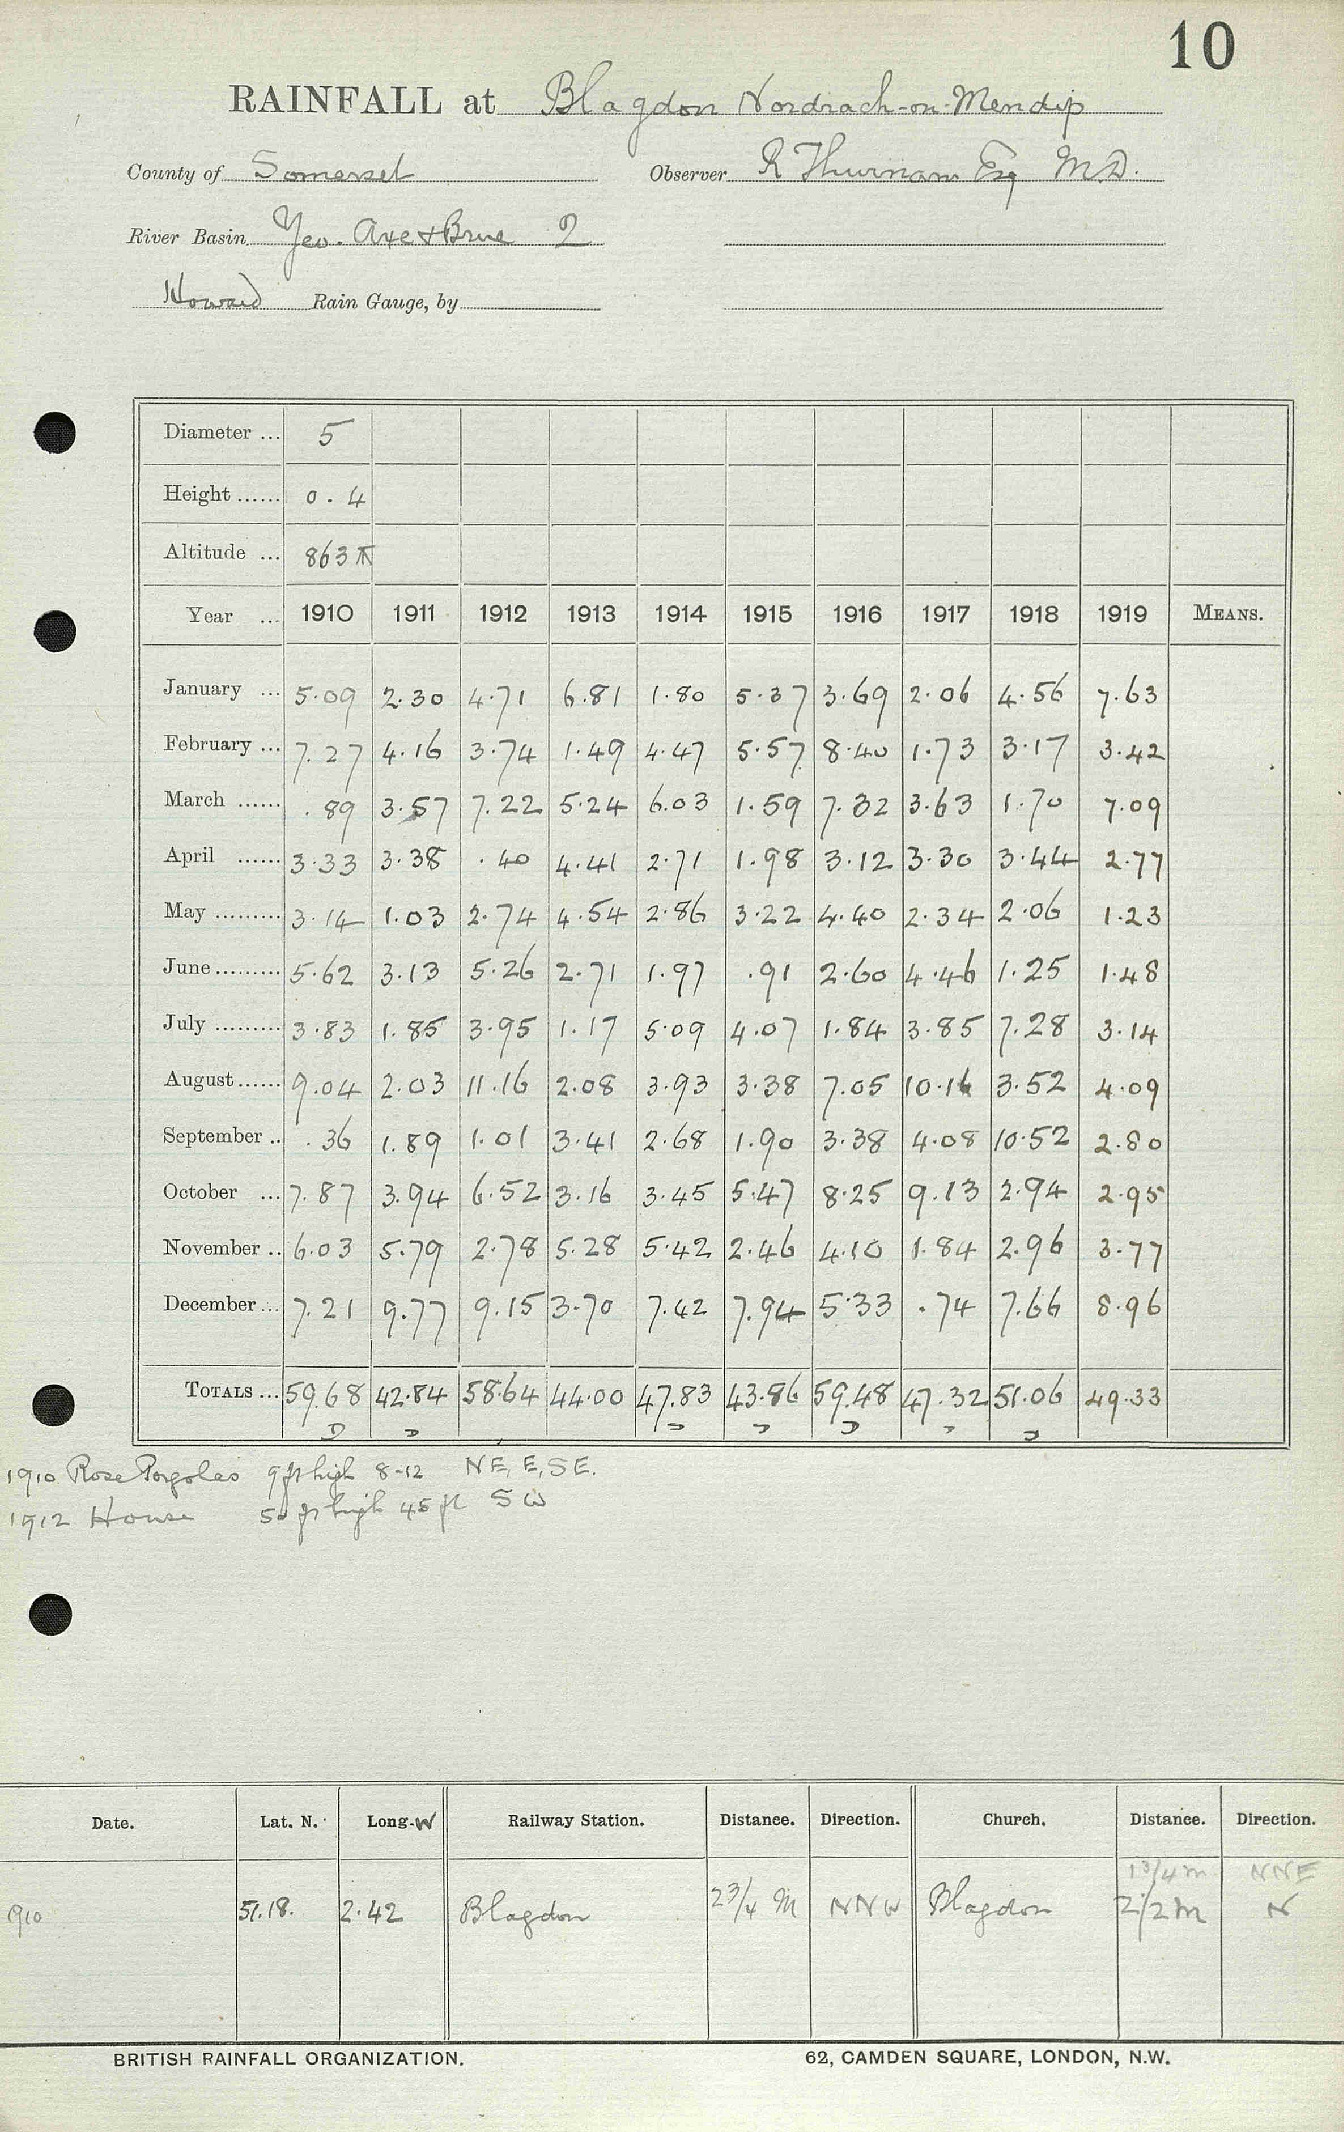 10
RAINFALL at Blagdon Nordrach-on-Mendip
County of Somerset Observer R Thurnam Esq M.D.
River Basin Yeo. Axe & Brue 2
Howard Rain Gauge, by
Diameter ... 5
Height ...... 0.4
Altitude ... 863 ft
Year ... 1910 1911 1912 1913 1914 1915 1916 1917 1918 1919 MEANS.
January ... 5.09 2.30 4.71 6.81 1.80 5.37 3.69 2.06 4.56 7.63
February ... 7.27 4.16 3.74 1.49 4.47 5.57 8.40 1.73 3.17 3.42
March ...... .89 3.57 7.22 5.24 6.03 1.59 7.32 3.63 1.70 7.09
April ...... 3.33 3.38 .40 4.41 2.71 1.98 3.12 3.30 3.44 2.77
May ......... 3.14 1.03 2.74 4.54 2.86 3.22 4.40 2.34 2.06 1.23
June ......... 5.62 3.13 5.26 2.71 1.97 .91 2.60 4.46 1.25 1.48
July ......... 3.83 1.85 3.95 1.17 5.09 4.07 1.84 3.85 7.28 3.14
August ...... 9.04 2.03 11.16 2.08 3.93 3.38 7.05 10.16 3.52 4.09
September .. .36 1.89 1.01 3.41 2.68 1.90 3.38 4.08 10.52 2.80
October ... 7.87 3.94 6.52 3.16 3.45 5.47 8.25 9.13 2.94 2.95
November .. 6.03 5.79 2.78 5.28 5.42 2.46 4.10 1.84 2.96 3.77
December ... 7.21 9.77 9.15 3.70 7.42 7.94 5.33 .74 7.66 8.96
TOTALS ... 59.68 42.84 58.64 44.00 47.83 43.86 59.48 47.32 51.06 49.33
1910 Rose Pergolas 9 ft high 8-12 NE, E, SE.
1912 House 50 ft high 45 ft SW
Date. Lat. N. Long. W Railway Station. Distance. Direction. Church. Distance. Direction.
1 3/4 m NNE
1910 51.18. 2.42 Blagdon 2 3/4 M NNW Blagdon 2 1/2 m N
BRITISH RAINFALL ORGANIZATION. 62, CAMDEN SQUARE, LONDON, N.W.